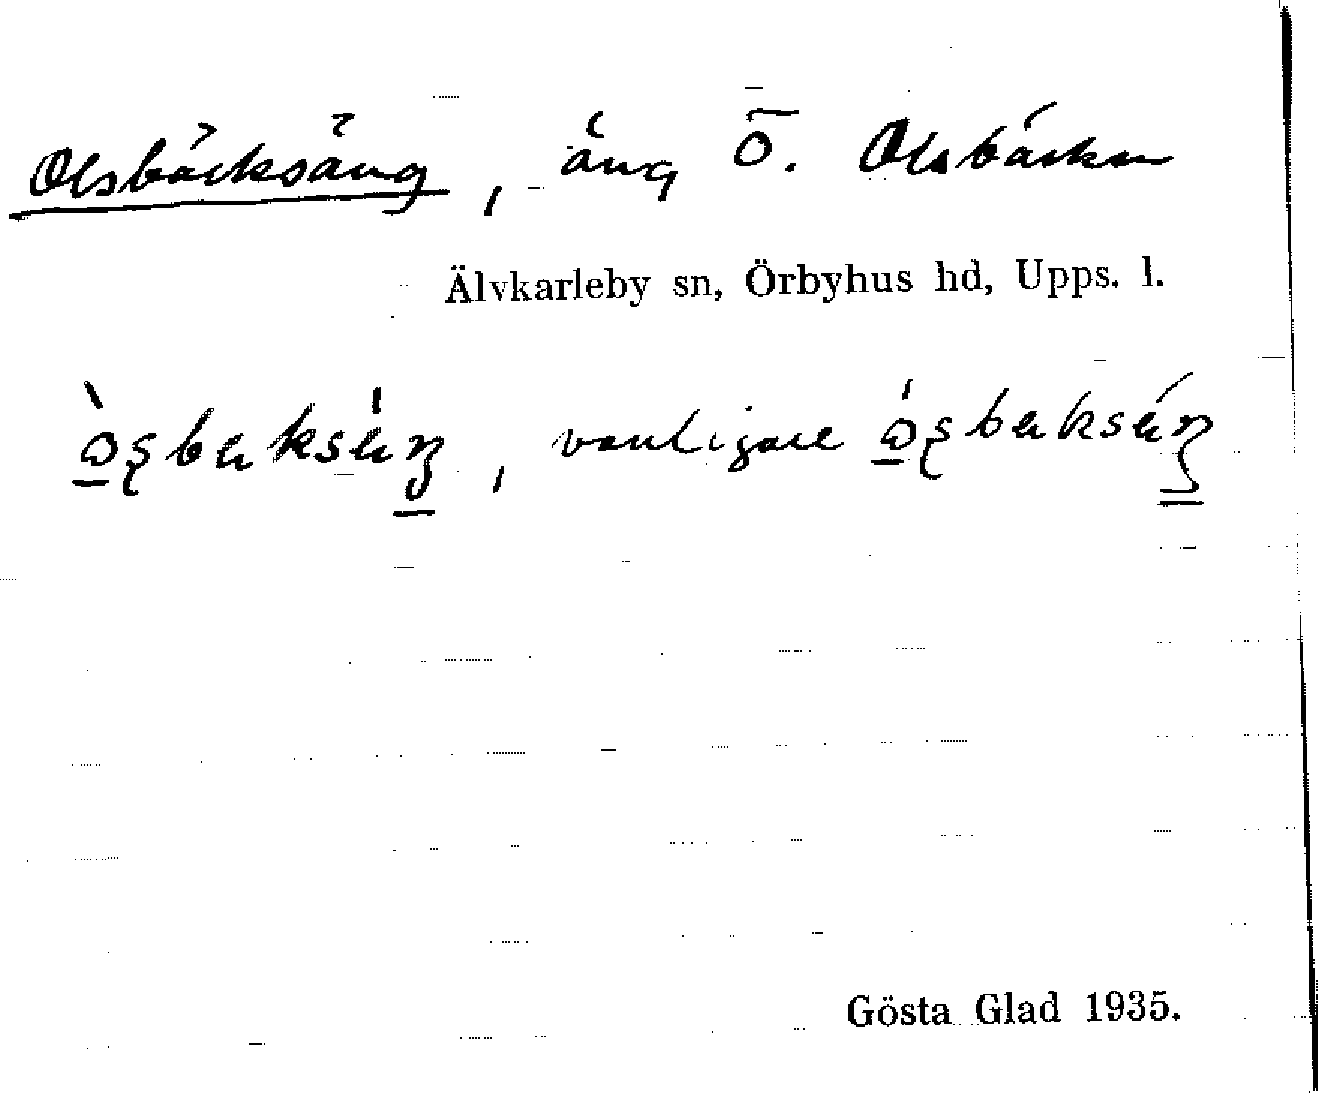 Olsbäcksäng, äng Ö. Olsbäcken
Älvkarleby sn, Örbyhus hd, Upps. l.
vanligare
Gösta Glad 1935.